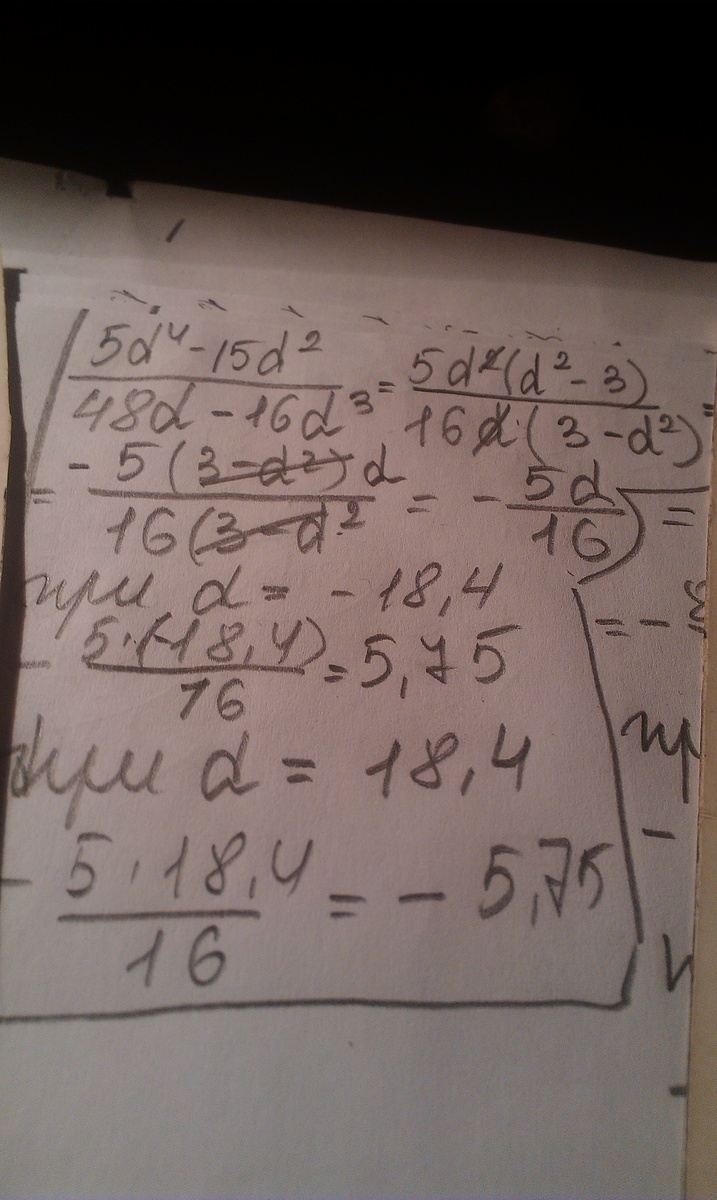 5d⁴-15d² / 48d-16d³ = 5d²(d²-3) / 16d·(3-d²) =
= -5(3-d²)d / 16(3-d² = -5d / 16 =
при d = -18,4
- 5·(-18,4) / 16 = 5,75
при d = 18,4
- 5·18,4 / 16 = - 5,75
= -
пр
-